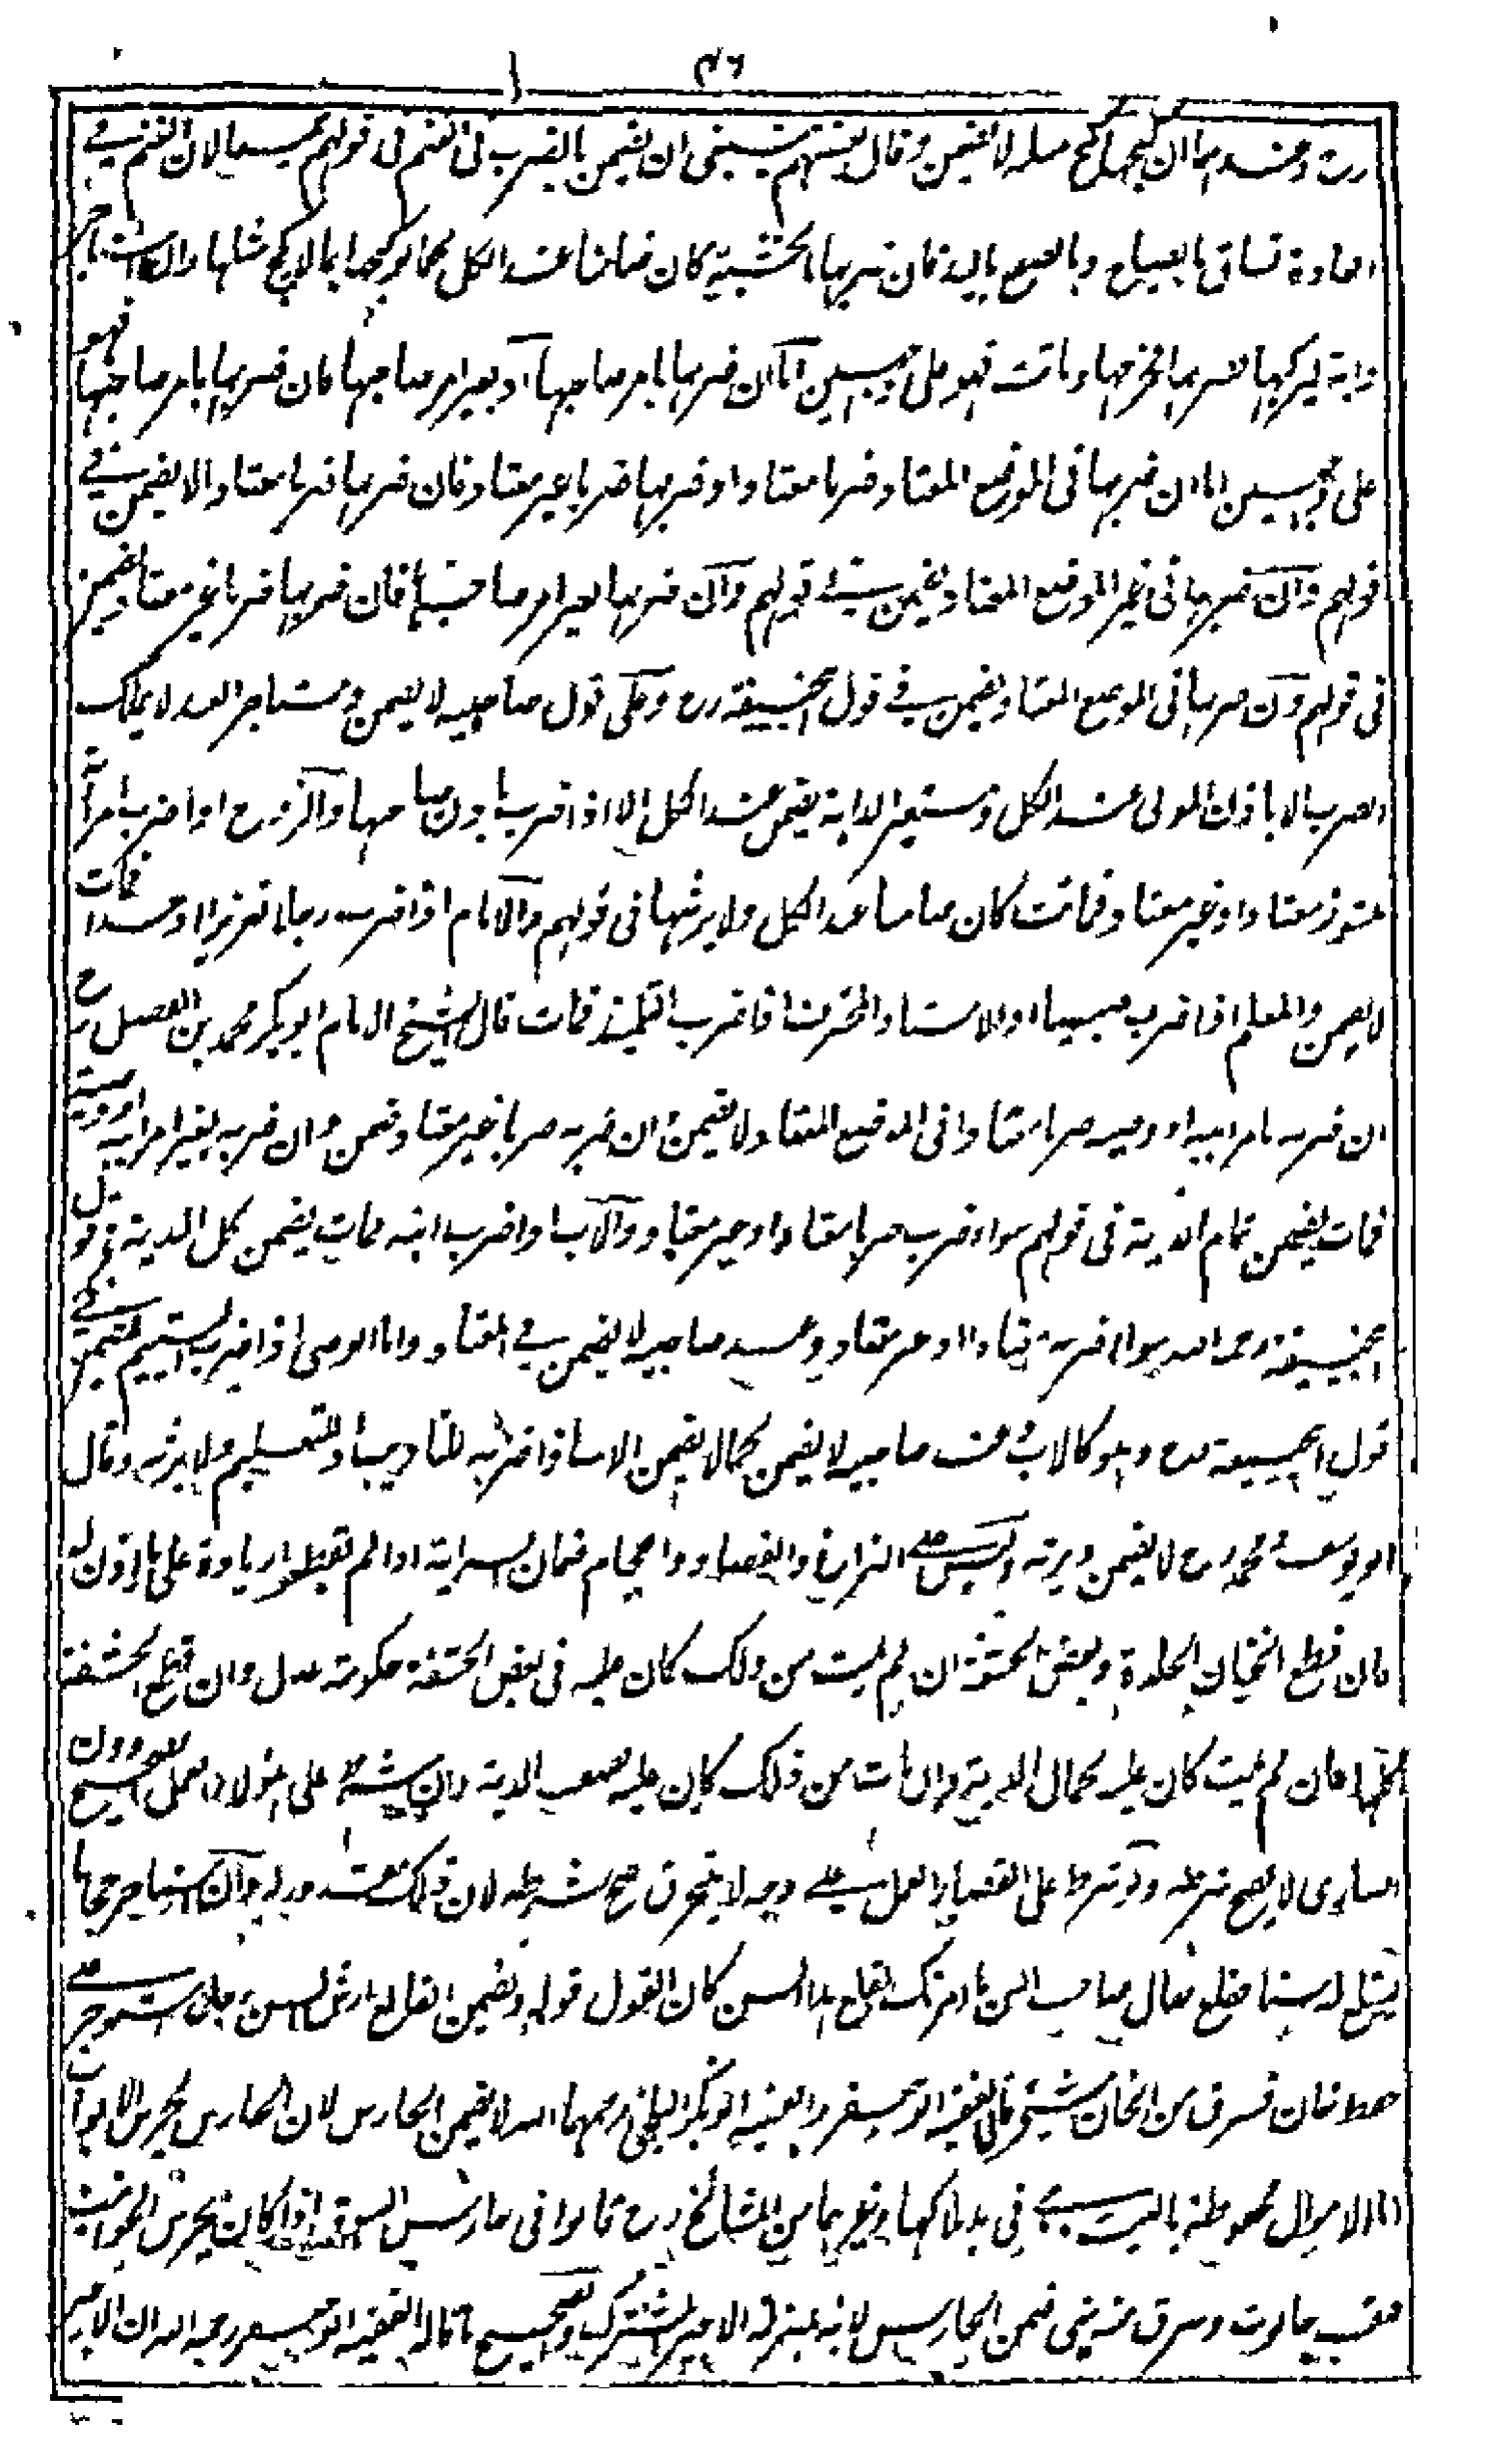 ٤٦
رح وعندهما ان كبحها كبح مثله لا يضمن وقال بعضهم ينبغي ان يضمن بالضرب في الغنم في قولهم جميعا لان الغنم في
العادة تساق بالصياح وبالصفع باليد فان ضربها بالخشبة كان ضامنا عند الكل كما لو كبحها بما لا يكبح مثلها واذا استأجر
دابة ليركبها فضربها المخرجها وماتت فهو على وجهين اما ان ضربها بامر صاحبها او بغير امر صاحبها فان ضربها بامر صاحبها فهو
على وجهين اما ان ضربها في الموضع المعتاد ضربا معتادا او ضربها ضربا غير معتاد فان ضربها ضربا معتادا لا يضمن في
قولهم وان ضربها في غير الموضع المعتاد يضمن في قولهم وان ضربها بغير امر صاحبها فان ضربها ضربا غير معتاد يضمن
في قولهم وان ضربها في الموضع المعتاد يضمن في قول ابي حنيفة رح وعلى قول صاحبيه لا يضمن ومستاجر العبد لا يملك
الضرب الا باذن المولى عند الكل ومستعير الدابة يضمن عند الكل الا اذا ضرب باذن صاحبها والزوج اذا ضرب امرأته
للنشوز معتادا او غير معتاد فماتت كان ضامنا عند الكل ولا يرثها في قولهم والامام اذا ضرب رجلا تعزيرا او حدا فمات
لا يضمن والمعلم اذا ضرب صبيا او الاستاد المحترف اذا ضرب التلميذ فمات قال الشيخ الامام ابو بكر محمد بن الفضل رح
ان ضربه بامر ابيه او وصيه ضربا معتادا في الموضع المعتاد لا يضمن وان ضربه ضربا غير معتاد ضمن وان ضربه بغير امر ابيه او وصيه
فمات يضمن تمام الدية في قولهم سواء ضرب ضربا معتادا او غير معتاد والاب اذا ضرب ابنه فمات يضمن كل الدية في قول
ابي حنيفة رحمه الله سواء ضربه معتادا او غير معتاد وعند صاحبيه لا يضمن في المعتاد واما الوصي اذا ضرب اليتيم يضمن في
قول ابي حنيفة رح وهو كالاب وعند صاحبيه لا يضمن كما لا يضمن الاستاذ اذا ضربه للتاديب او للتعليم ولا يرثه وقال
ابو يوسف ومحمد رح لا يضمن ويرثه وليس على البزاغ والفصاد والحجام ضمان السراية اذا لم يقطعوا زيادة على ماذون له
فان قطع الختان الجلدة وبعض الحشفة ان لم يمت من ذلك كان عليه في بعض الحشفة حكومة عدل وان قطع الحشفة
كلها فان لم يمت كان عليه كمال الدية وان مات من ذلك كان عليه نصف الدية وان شرط على هؤلاء العمل الصحيح دون
الساري لا يصح شرطه ولو شرط على القصار العمل على وجه لا ينخرق صح شرطه لان ذلك مقدور له وان استاجر حجاما
ليقلع له سنا فقلع فقال صاحب السن ما امرتك بقلع هذا السن كان القول قوله ويضمن القالع ارش السن رجل استوجر على
حفظ خان فسرق من الخان شيء قال الفقيه ابو جعفر والفقيه ابو بكر البلخي رحمهما الله لا يضمن الحارس لان الحارس يحرس الابواب
اما الاموال محفوظة بالبيت في يد ملاكها وغيرهما من المشائخ رح قالوا في حارس السوق اذا كان يحرس الحوانيت
فنقب حانوت وسرق منه شيء ضمن الحارس لانه بمنزلة الاجير المشترك والصحيح ما قاله الفقيه ابو جعفر رحمه الله ان الاجير